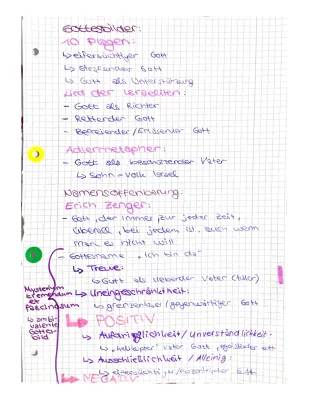 Gottesbilder:
10 Plagen:
↳ eifersüchtiger Gott
↳ strafender Gott
↳ Gott als Unterstützung
Lied der Israeliten:
- Gott als Richter
- Rettender Gott
- Befreiender/Erlösender Gott
Adlermetapher:
- Gott als beschützender Vater
↳ Sohn - Volk Israel
Namensoffenbarung:
Erich Zenger:
- Gott, der immer, zur jeder Zeit,
überall, bei jedem ist, auch wenn
man es nicht will
- Gottesname "Ich bin da"
↳ Treue:
↳ Gott als liebender Vater
↳ Uneingeschränktheit:
↳ grenzenloser/gegenwärtiger Gott
↳ POSITIV
↳ Aufdringlichkeit/Unverständlichkeit:
↳ "helikopter" Vater Gott, egoistischer Gott
↳ Ausschließlichkeit/Alleinig:
↳ eifersüchtiger/ Gott
↳ NEGATIV
Mysterium
tremendum
et
fascinosum
↳ ambi-
valente
Gottes-
bild